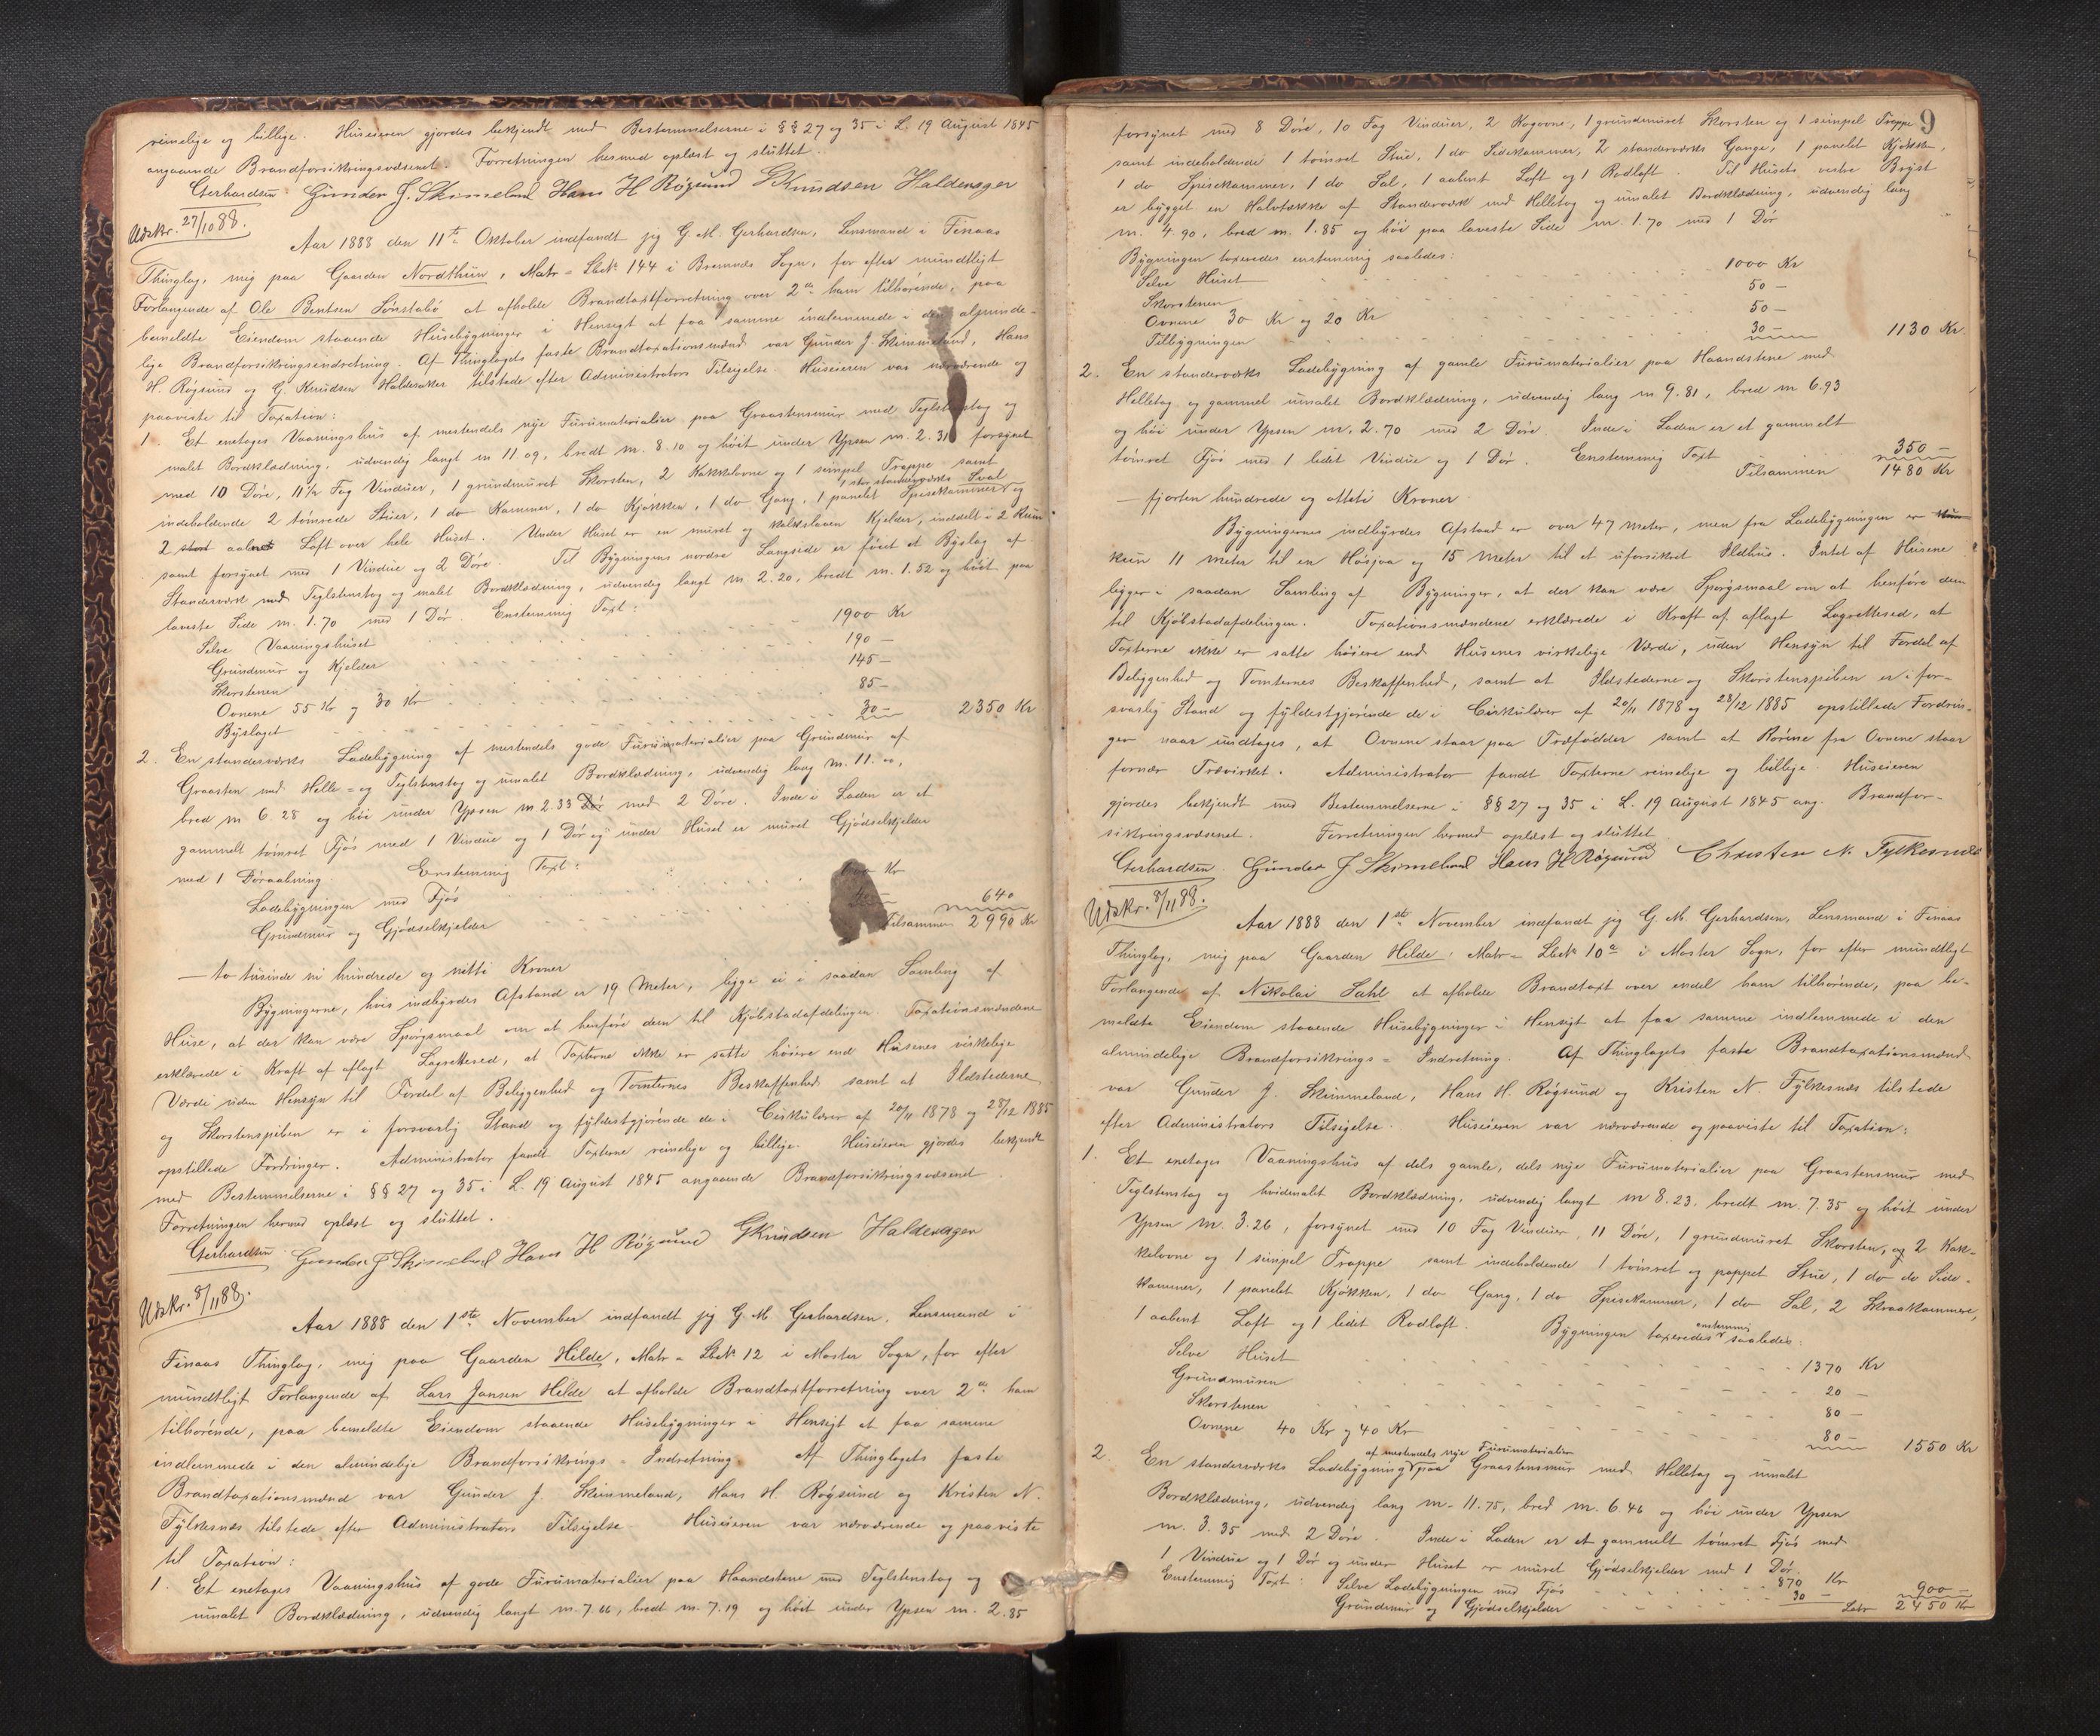 reimelige og billige. Huseieren gjordes bekjendt med Bestemmelserne i §§ 27 og 35 i L. 19 August 1845
angaaende Brandforsikringsvæsenet. Forretningen hermed oplæst og sluttet.
Gerhardsen Gunder J. Skimeland Hans H Røgsund GKnudsen Haldenager
Udskr. 27/10 88.
Aar 1888 den 11te Oktober indfandt jeg G. M. Gerhardsen, Lensmand i Finaas
Thinglag, mig paa Gaarden Nordthun, Matr = Lbnr 144 i Bremnæs Sogn, for efter mundtligt
Forlangende af Ole Bentsen Lønstabø at afholde Brandtaxtforretning over 2de ham tilhørende, paa
bemeldte Eiendom staaende Husebygninger i Hensigt at faa samme indlemmede i den alminde-
lige Brandforsikringsindretning. Af Thinglagets faste Brandtaxationsmænd var Gunder J. Skimmeland, Hans
H. Røgsund og G. Knudsen Haldenaker tilstede efter Administrators Tilsigelse. Huseieren var nærværende og
paaviste til Taxation:
1. Et enetages Vaaningshus af mestendels nye Furumaterialier paa Graastensmur med Teglstenstag og
malet Bordklædning, udvendig langt m 11.09, bredt m. 8.10 og høit under Ypsen m. 2.31 forsynet
med 10 Døre, 11 1/2 Fag Vinduer, 1 grundmuret Skorsten, 2 Kakkelovne og 1 simpel Trappe samt
1 stor standerværks Sval
indeholdende 2 tømrede Stuer, 1 do Kammer, 1 do Kjøkken, 1 do Gang, 1 panelet Spisekammer og
2 stort aabnet Loft over hele Huset. Under Huset er en muret og kalkslaaen Kjelder, inddelt i 2 Rum
samt forsynet med 1 Vindue og 2 Døre. Til Bygningens nordre Langside er føiet et Bislag af
Standerværk med Teglstenstag og malet Bordklædning, udvendig langt m 2.20, bredt m. 1.52 og høit paa
laveste Side m. 1.70 med 1 Dør. Enstemmig Taxt:
Selve Vaaningshuset 1900 Kr
Grundmur og Kjelder 190 —
Skorstenen 145 —
Ovnene 55 Kr og 30 Kr 85 —
Byslaget 30 — 2350 Kr
2. En standerværks Ladebygning af mestendels gode Furumaterialier paa Grundmur af
Graasten med Helle = og Teglstenstag og umalet Bordklædning, udvendig lang m. 11.00,
bred m 6.28 og høi under Ypsen m 2.33 Dør med 2 Døre. Inde i Laden er et
gammelt tømret Fjøs med 1 Vindue og 1 Dør og under Huset er muret Gjødselkjelder
med 1 Døraabning. Enstemmig Taxt:
Ladebygningen med Fjøs 600 Kr
Grundmur og Gjødselskjelder 40 — 640
Tilsammen 2990 Kr
— to tusinde ni hundrede og nitti Kroner
Bygningerne, hvis indbyrdes Afstand er 19 Meter, ligge ei i saadan Samling af
Huse, at der kan være Spørgsmaal om at henføre dem til Kjøbstadafdelingen. Taxationsmændene
erklærede i Kraft af aflagt Lagrettesed, at Taxterne ikke er satte høiere end Husenes virkelige
Værdi uden Hensyn til Fordel af Beliggenhed og Tomternes Beskaffenhed samt at Ildstederne
og Skorstenspiben er i forsvarlig Stand og fyldestgjørende de i Cirkulærer af 20/11 1878 og 28/12 1885
opstillede Fordringer. Administrator fandt Taxterne reimelige og billige. Huseieren gjordes bekjendt
med Bestemmelserne i §§ 27 og 35 i L. 19 August 1845 angaaende Brandforsikringsvæsenet.
Forretningen hermed oplæst og sluttet.
Gerhardsen Gunder J Skimeland Hans H Røgsund GKnudsen Haldenager
Udskr. 8/11 88.
Aar 1888 den 1ste November indfandt jeg G M Gerhardsen, Lensmand i
Finaas Thinglag, mig paa Gaarden Hilde, Matr = Lbnr 12 i Moster Sogn, for efter
mundtligt Forlangende af Lars Jansen Hilde at afholde Brandtaxtforretning over 2de ham
tilhørende, paa bemeldte Eiendom staaende Husebygninger i Hensigt at faa samme
indlemmede i den almindelige Brandforsikrings = Indretning. Af Thinglagets faste
Brandtaxationsmænd var Gunder J. Skimmeland, Hans H. Røgsund og Kristen N.
Fylkesnæs tilstede efter Administrators Tilsigelse. Huseieren var nærværende og paaviste
til Taxation:
1. Et enetages Vaaningshus af gode Furumaterialier paa Haandstene med Teglstenstag og
umalet Bordklædning, udvendig langt m. 7.66, bredt m. 7.19 og høit under Ypsen m. 2.85
9
forsynet med 8 Døre, 10 Fag Vinduer, 2 Kogovne, 1 grundmuret Skorsten og 1 simpel Trappe
samt indeholdende 1 tømret Stue, 1 do Sidekammer, 2 standerværks Gange, 1 panelet Kjøkken,
1 do Spisekammer, 1 do Sal, 1 aabent Loft og 1 Rodloft. Til Husets vestre Bryst
er bygget en Halvtække af Standerværk med Helletag og umalet Bordklædning, udvendig lang
m. 4.90, bred m. 1.85 og høi paa laveste Side m. 1.70 med 1 Dør
Bygningen taxeredes enstemmig saaledes:
Selve Huset 1000 Kr
Skorstenen 50 —
Ovnene 30 Kr og 20 Kr 50 —
Tilbygningen 30 — 1130 Kr.
2. En standerværks Ladebygning af gamle Furumaterialier paa Haandstene med
Helletag og gammel umalet Bordklædning, udvendig lang m 9.81, bred m 6.93
og høi under Ypsen m. 2.70 med 2 Døre. Inde i Laden er et gammelt
tømret Fjøs med 1 ledet Vindue og 1 Dør. Enstemmig Taxt 350 —
Tilsammen 1480 Kr
— fjorten hundrede og otteti Kroner.
Bygningernes indbyrdes Afstand er over 47 Meter, men fra Ladebygningen er kun
kun 11 Meter til en Høsjaa og 15 Meter til et uforsikret Ildhus. Intet af Husene
ligger i saadan Samling af Bygninger, at der kan være Spørgsmaal om at henføre dem
til Kjøbstadafdelingen. Taxationsmændene erklærede i Kraft af aflagt Lagrettesed, at
Taxterne ikke er satte høiere end Husenes virkelige Værdi, uden Hensyn til Fordel af
Beliggenhed og Tomternes Beskaffenhed, samt at Ildstederne og Skorstenspiben er i for-
svarlig Stand og fyldestgjørende de i Cirkulærer af 20/11 1878 og 28/12 1885 opstillede Fordrin-
ger naar undtages, at Ovnene staar paa Træfødder samt at Rørene fra Ovnene staar
fornær Trævirket. Administrator fandt Taxterne reimelige og billige. Huseieren
gjordes bekjendt med Bestemmelserne i §§ 27 og 35 i L. 19 August 1845 ang. Brandfor-
sikringsvæsenet. Forretningen hermed oplæst og sluttet
Gerhardsen Gunder J Skimeland Hans H Røgsund Christen N. Fylkesnæs
Udskr. 8/11 88.
Aar 1888 den 1ste November indfandt jeg G. M. Gerhardsen, Lensmand i Finaas
Thinglag, mig paa Gaarden Hilde, Matr = Lbnr 10a i Moster Sogn, for efter mundtligt
Forlangende af Nikolai Dahl at afholde Brandtaxt over endel ham tilhørende, paa be-
meldte Eiendom staaende Husebygninger i Hensigt at faa samme indlemmede i den
almindelige Brandforsikrings = Indretning. Af Thinglagets faste Brandtaxationsmænd
var Gunder J. Skimmeland, Hans H. Røgsund og Kristen N. Fylkesnæs tilstede
efter Administrators Tilsigelse. Huseieren var nærværende og paaviste til Taxation:
1. Et enetages Vaaningshus af dels gamle, dels nye Furumaterialier paa Graastensmur med
Teglstenstag og hvidmalet Bordklædning, udvendig langt m 8.23, bredt m. 7.35 og høit under
Ypsen m. 3.26, forsynet med 10 Fag Vinduer, 11 Døre, 1 grundmuret Skorsten, og 2 Kak-
kelovne og 1 simpel Trappe samt indeholdende 1 tømret og pappet Stue, 1 do do Side-
kammer, 1 panelet Kjøkken, 1 do Gang, 1 do Spisekammer, 1 do Sal, 2 Skraakammere,
1 aabent Loft og 1 ledet Rodloft. Bygningen taxeredes enstemmig saaledes:
Selve Huset 1370 Kr
Grundmuren 20 —
Skorstenen 80 —
Ovnene 40 Kr og 40 Kr 80 — 1550 Kr
2. En standerværks Ladebygning af mestendels nye Furumaterialier paa Graastensmur med Helletag og umalet
Bordklædning, udvendig lang m. 11.75, bred m. 6.46 og høi under Ypsen
m. 3.35 med 2 Døre. Inde i Laden er et gammelt tømret Fjøs med
1 Vindue og 1 Dør og under Huset er muret Gjødselkjelder med 1 Dør.
Enstemmig Taxt: Selve Ladebygningen med Fjøs 870 Kr
Grundmur og Gjødselskjelder 30 — 900 —
Latr 2450 Kr